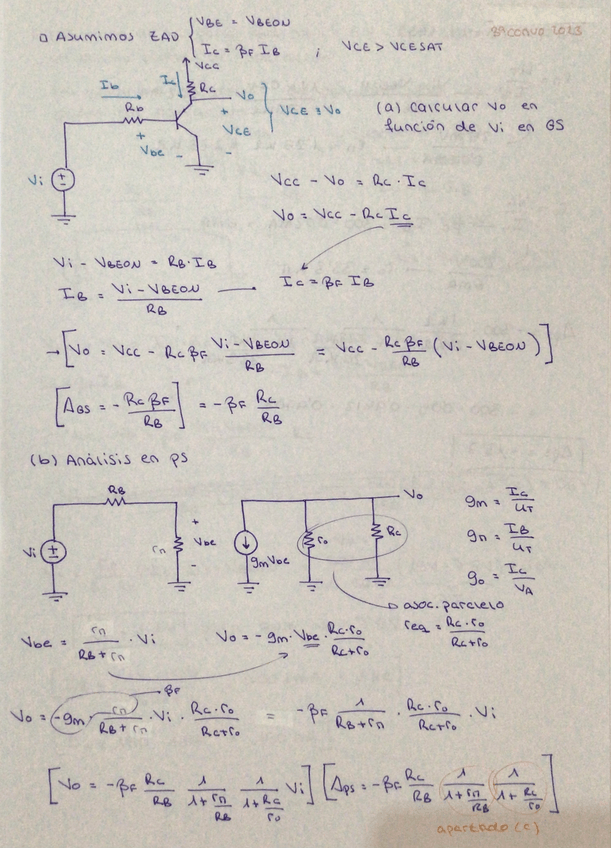 □ Asumimos ZAD { VBE = VBEON
IC = βF IB ; VCE > VCESAT
2023
VCC
Ib
IC
RC
Vo
Rb
+
VCE = Vo
VCE
+
Vbe
-
-
Vi
(a) Calcular Vo en
función de Vi en GS
VCC - Vo = RC · IC
Vo = VCC - RC IC
Vi - VBEON = RB · IB
IB = (Vi - VBEON)/RB — IC = βF IB
→ [Vo = VCC - RC βF (Vi - VBEON)/RB = VCC - (RC βF)/RB (Vi - VBEON)]
[AGS = - (RC βF)/RB] = - βF RC/RB
(b) Análisis en PS
RB
Vi
rπ
+
Vbe
-
gmVbe
ro
RC
Vo
gm = IC/UT
gπ = IB/UT
go = IC/VA
→ asoc. paralelo
req = (RC · ro)/(RC + ro)
Vbe = rπ/(RB + rπ) · Vi
Vo = - gm · Vbe · (RC · ro)/(RC + ro)
βF
Vo = - gm · rπ/(RB + rπ) · Vi · (RC · ro)/(RC + ro) = - βF 1/(RB + rπ) · (RC · ro)/(RC + ro) · Vi
[Vo = - βF RC/RB 1/(1 + rπ/RB) 1/(1 + RC/ro) Vi] [APS = - βF RC/RB 1/(1 + rπ/RB) 1/(1 + RC/ro)]
apartado (c)